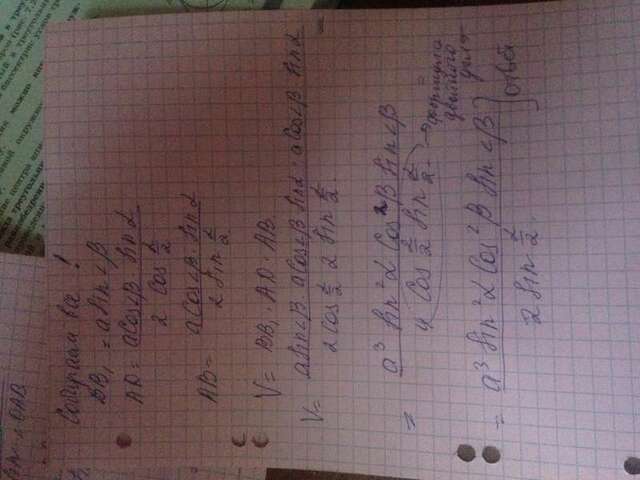 Собираем все !
BB₁ = a sin<β
AD = a cos<β · sin α
2 cos α/2
AB = a cos<β · sin α
2 sin α/2
V = BB₁ · AD · AB.
V = a sin<β · a cos<β sin α · a cos<β · sin α =
2 cos α/2 2 sin α/2.
= a³ sin²α cos²β sin<β
4 cos α/2 sin α/2. → формула
двойного
угла
= a³ sin²α cos²β sin<β ] ответ
2 sin α/2.